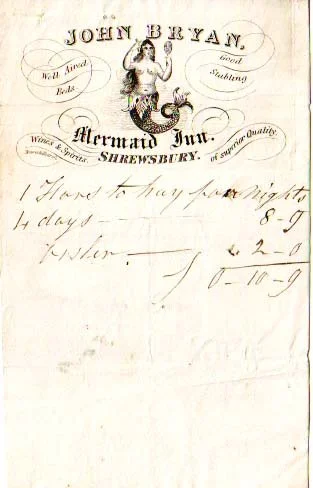 JOHN BRYAN,
Well Aired Beds.
Good Stabling
Mermaid Inn.
SHREWSBURY.
Wines & Spirits
of superior Quality.
1 Horse to hay for nights
4 days — 8-9
— 2-0
0-10-9